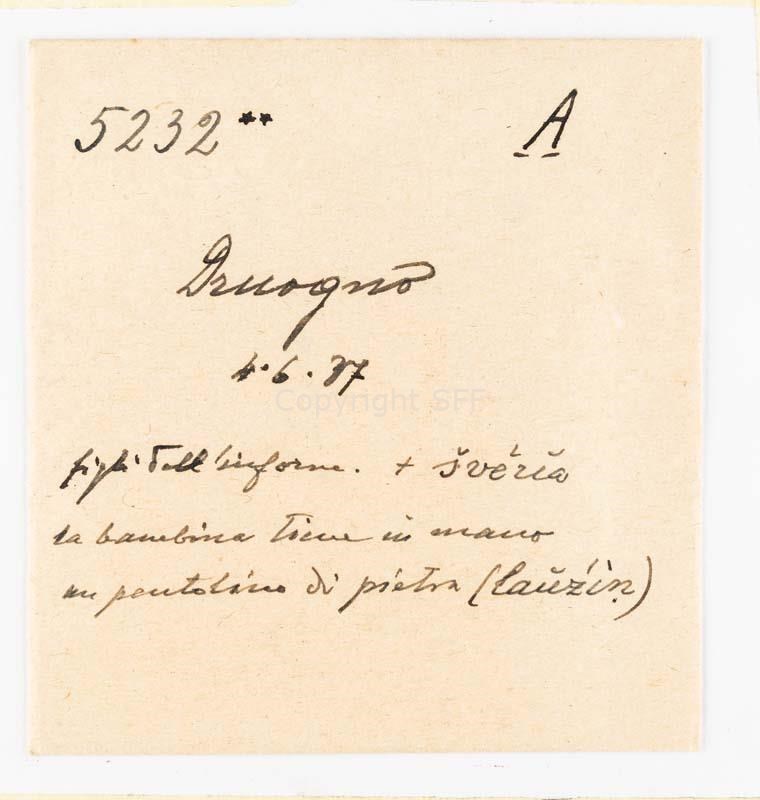 5232** A
Druogno
4.6.37
Copyright SFF
figli dell'inform. + švéria
la bambina tiene in mano
un pentolino di pietra (laužín)